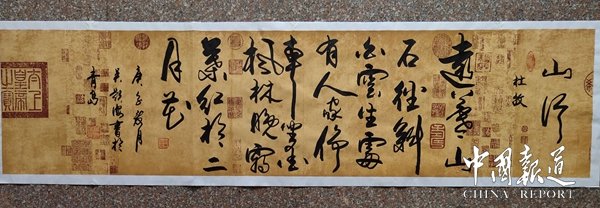 山行
杜牧
遠上寒山
石徑斜
白雲生處
有人家停
車坐愛
楓林晚霜
葉紅於二
月花
庚子月
書於
青島
中國報道
CHINA REPORT